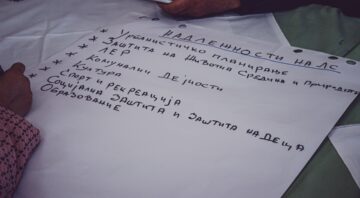 НАДЛЕЖНОСТИ НА ЛС
* УРБАНИСТИЧКО ПЛАНИРАЊЕ
* ЗАШТИТА НА ЖИВОТНА СРЕДИНА И ПРИРОДАТА
* ЛЕР
* КОМУНАЛНИ ДЕЈНОСТИ
* КУЛТУРА
* СПОРТ И РЕКРЕАЦИЈА
* СОЦИЈАЛНА ЗАШТИТА И ЗАШТИТА НА ДЕЦА
* ОБРАЗОВАНИЕ